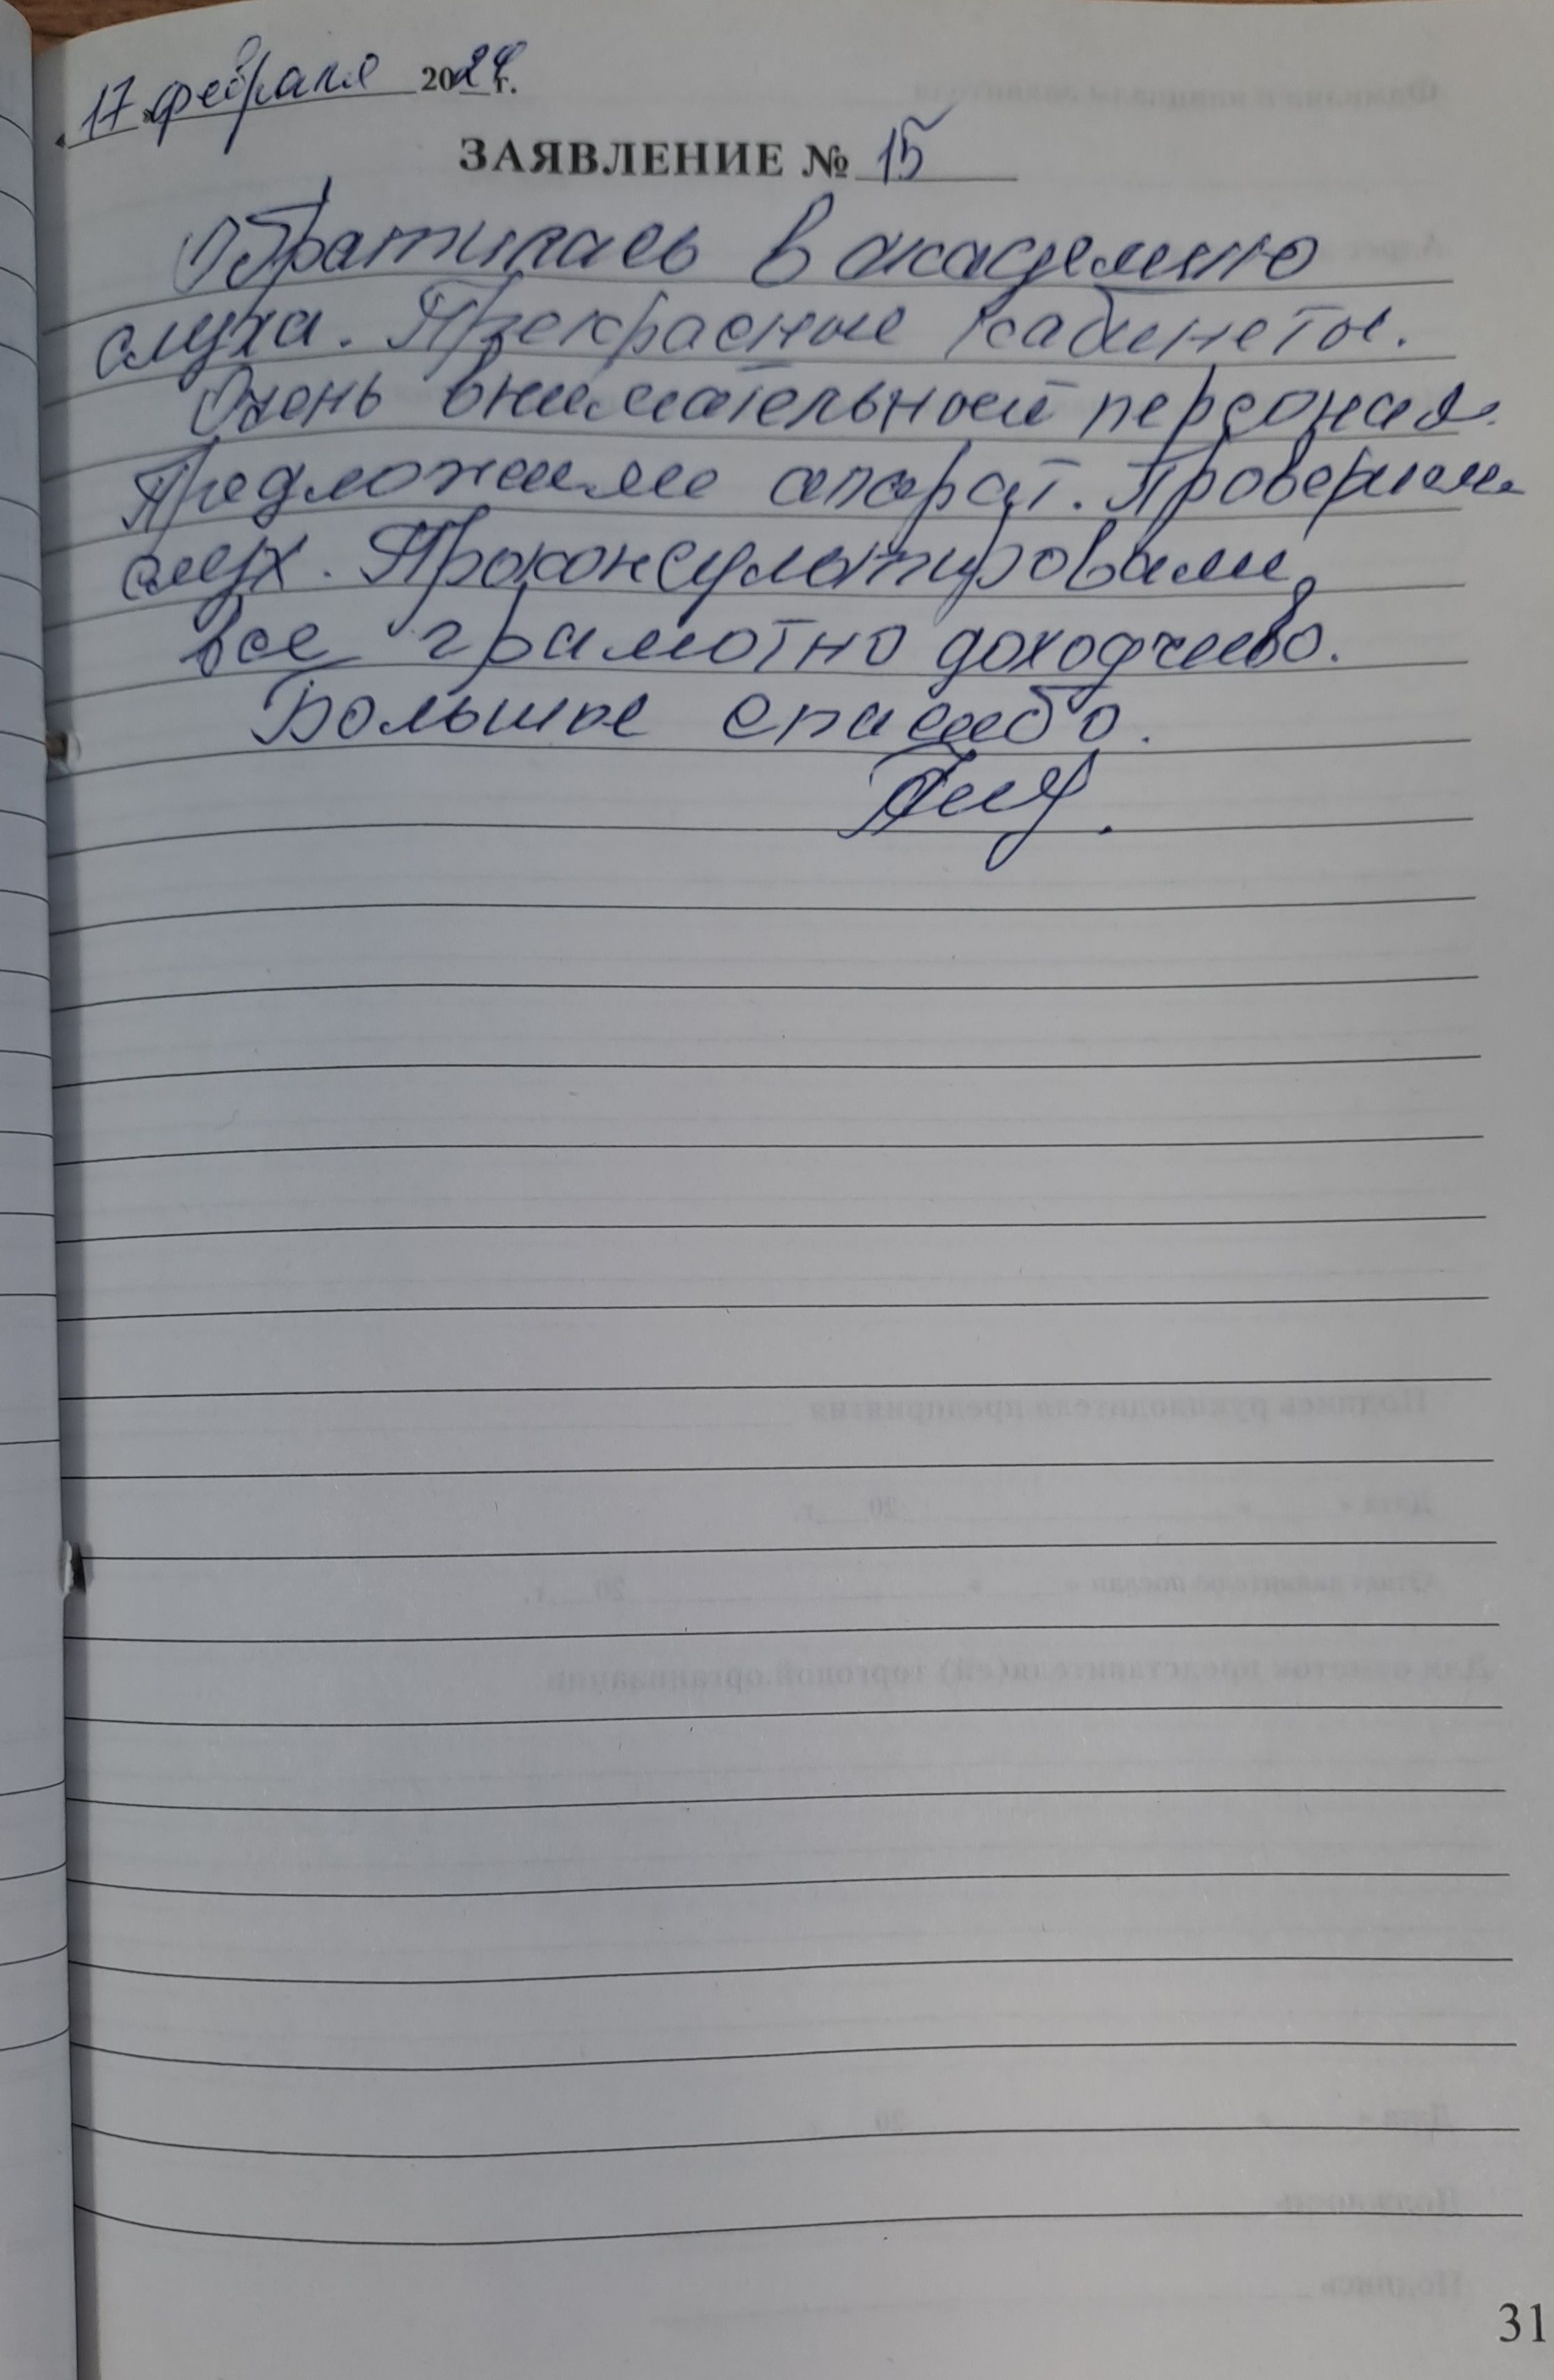 «17» февраля 2024 г.
ЗАЯВЛЕНИЕ № 15
Обратилась в академию
слуха. Прекрасные кабинеты.
Очень внимательный персонал.
Предложили апарат. Проверили
слух. Проконсультировали,
все грамотно доходчиво.
Большое спасибо.
31